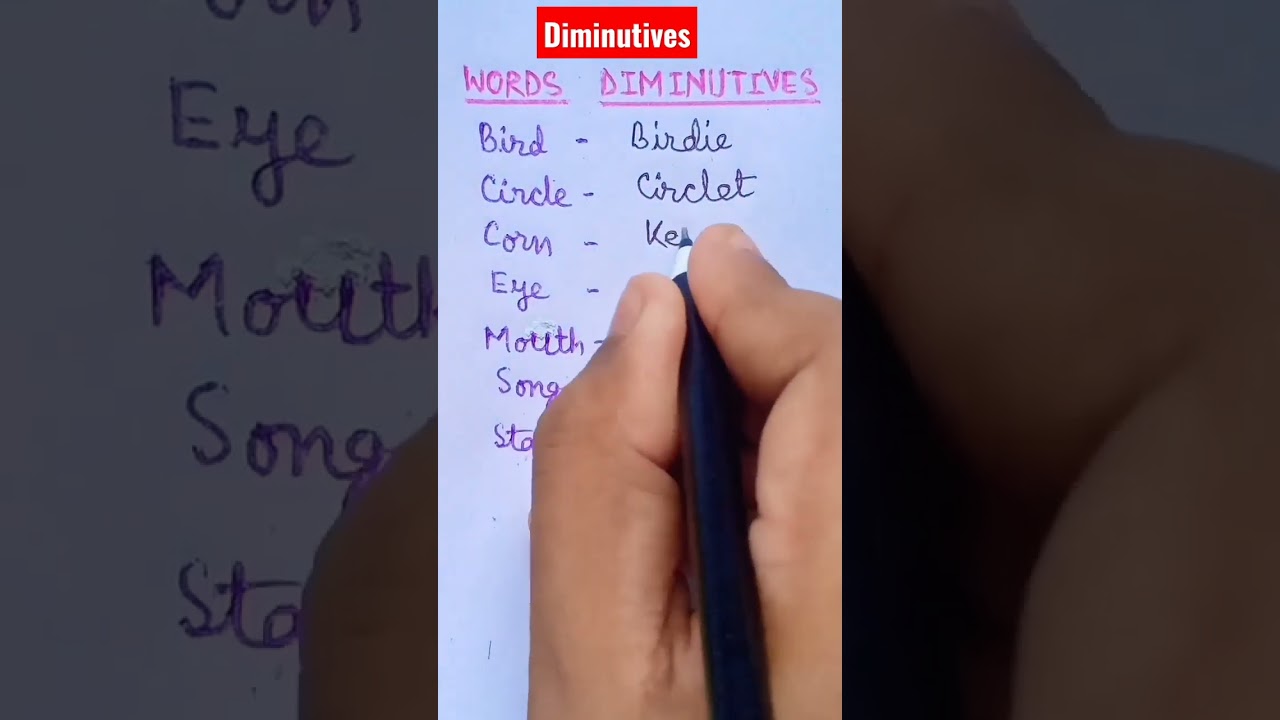 Diminutives
WORDS DIMINUTIVES
Bird - Birdie
Circle - Circlet
Corn - Ke
Eye -
Mouth -
Song
Sta